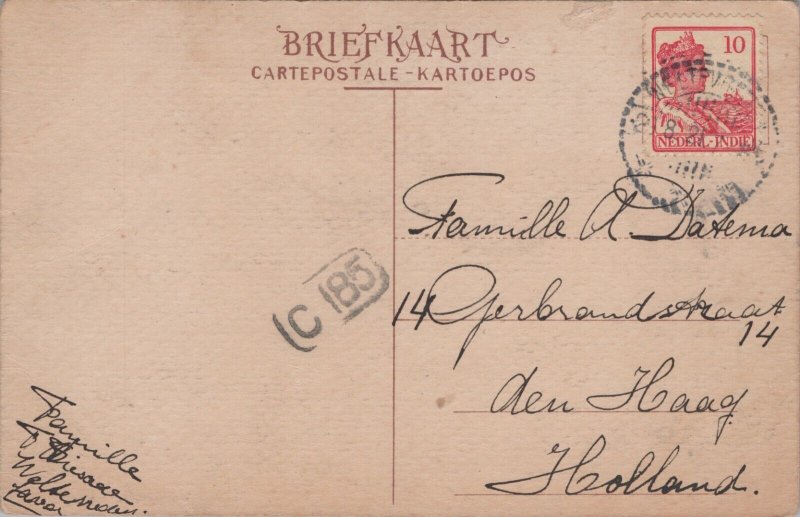 BRIEFKAART
CARTEPOSTALE-KARTOEPOS
10
NEDERL-INDIE
Famille A. Datema
14 Gerbrandstraat
14
den Haag
Holland.
C 185
Famille
Weltevreden.
Java